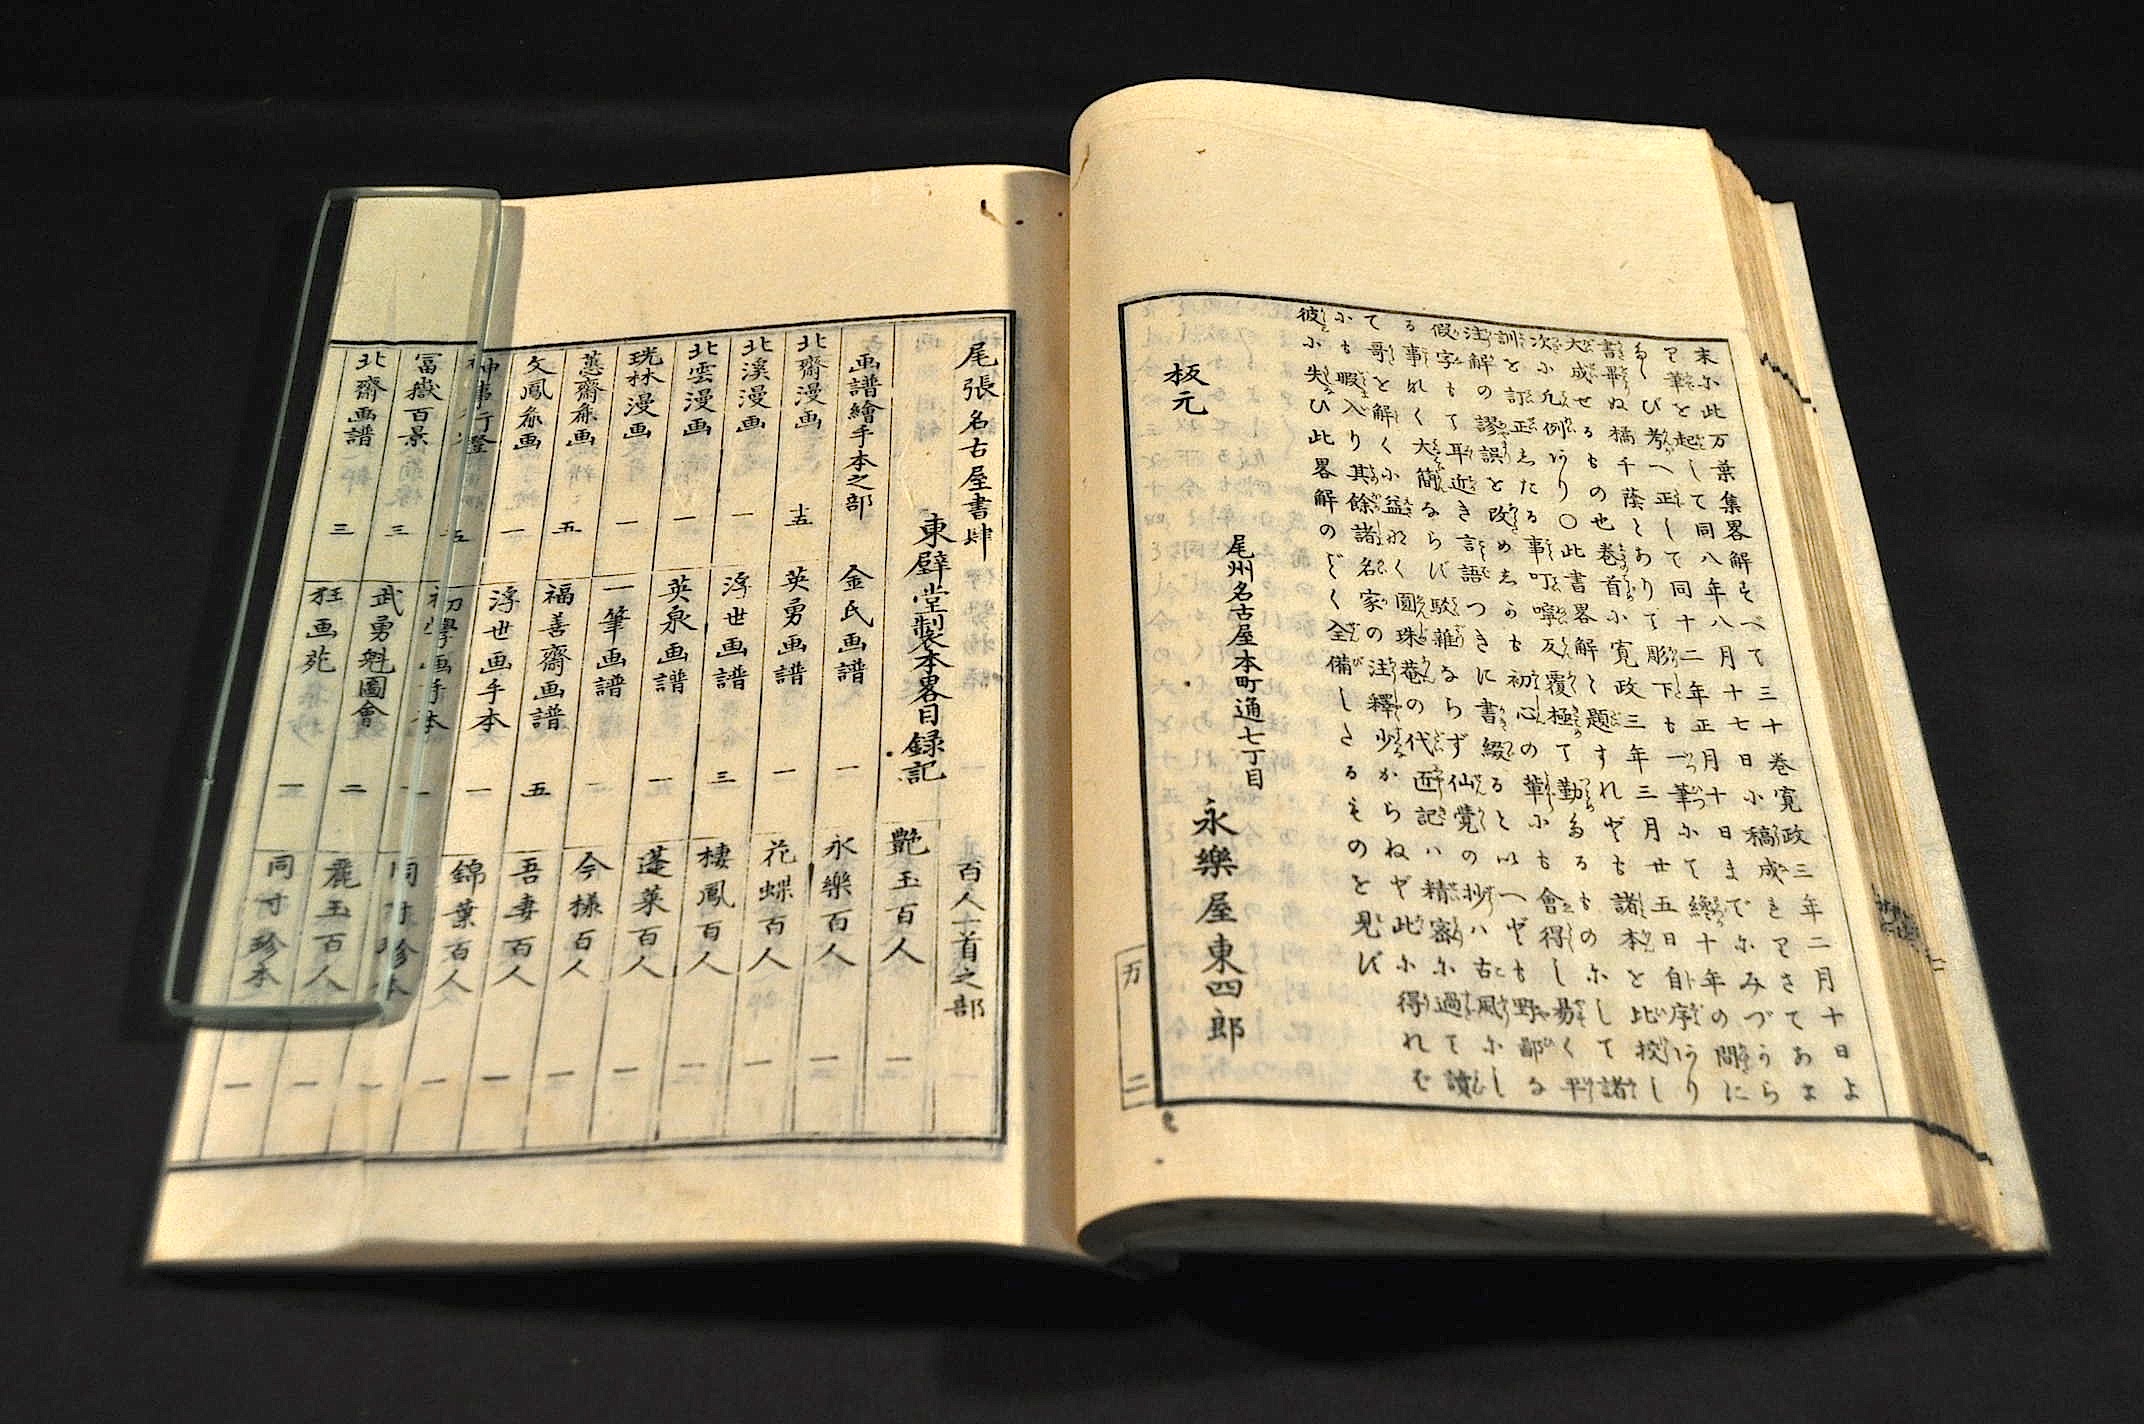 末尓此万葉集畧解すべて三十巻寛政三年二月十日よ
り筆を起して同八年八月十七日小稿成をりさてあま
たゝび考へ正して同十二年正月十日まで尓みづから
書畢ぬ橘千蔭とありて彫下も一筆尓て纔十年の間に
大成せるもの也巻首小寛政三年三月廿五日自序あり
次小凡例あり〇此書畧解と題すれども諸本を比校し
訓を訂正したる事叮嚀反覆極て勤たるもの尓して諸
注解の謬誤を改めしかも初心の輩尓も會得し易く平
假字もて耳近き言語つきに書綴ると以へども野鄙な
る事なく大簡ならば駁雜ならず仙覺の抄ハ古風尓し
て哥を解く小益なく圓珠菴の代匠記ハ精密尓過て讀
尓も暇入り其餘諸名家の注釋少からねど此尓得れば
彼尓失ひ此畧解のごとく全備したるものを見ず
板元
尾州名古屋本町通七丁目
永樂屋東四郎
万 二
尾張名古屋書肆
東壁堂製本畧目録記
百人一首之部 一
画譜繪手本之部
艶玉百人 一
北齋漫画 十五
金氏画譜 一
永樂百人 一
北溪漫画 一
英勇画譜 一
花蝶百人 一
北雲漫画 一
浮世画譜 三
棲鳳百人 一
珖林漫画 一
英泉画譜 一
蓬莱百人 一
蕙齋麁画 五
一筆画譜 一
今様百人 一
文鳳麁画 一
福善齋画譜 五
吾妻百人 一
神事行燈 五
浮世画手本 一
錦葉百人 一
冨嶽百景 三
初學画手本 一
同寸珍本 一
北齋画譜 三
武勇魁圖會 二
麗玉百人 一
狂画苑 三
同寸珍本 一